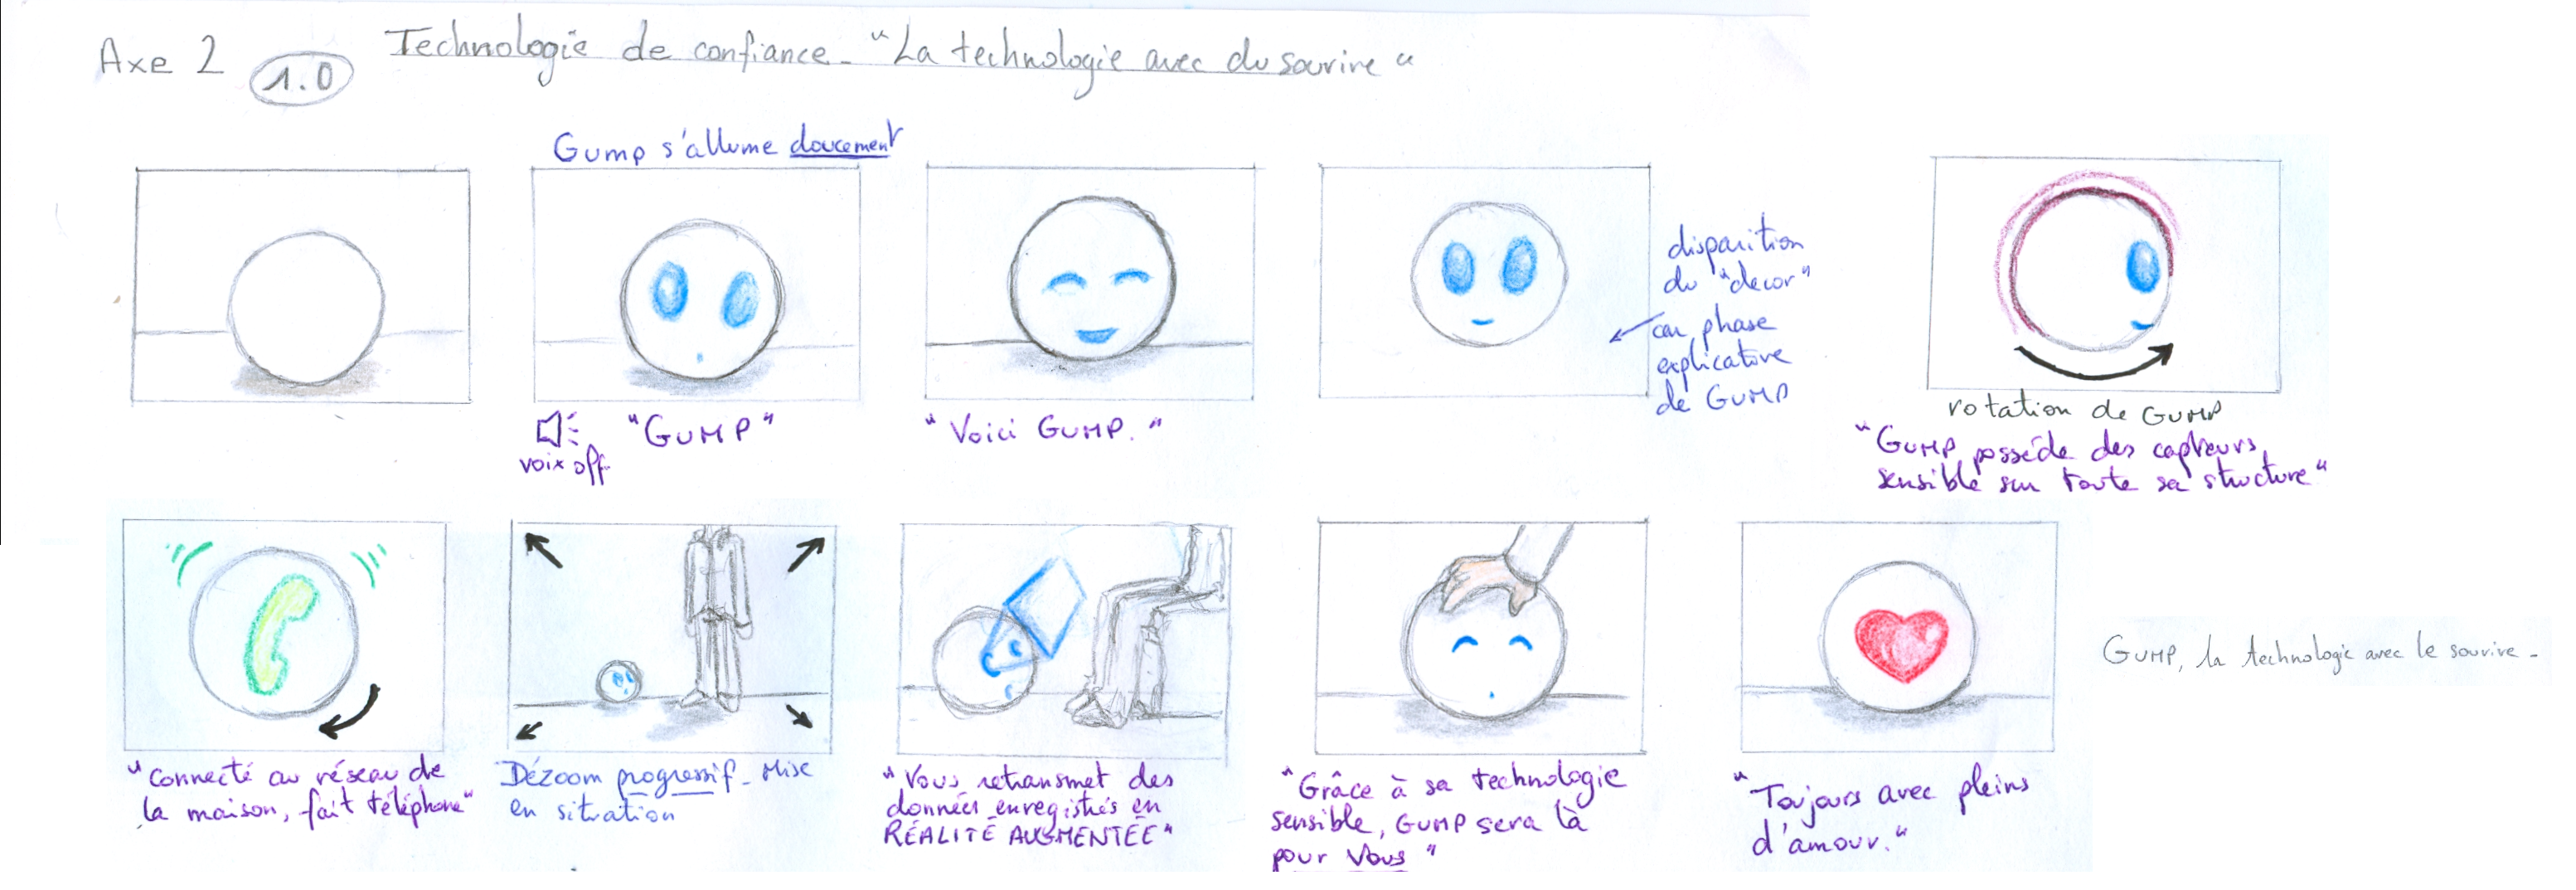 Axe 2 1.0 Technologie de confiance - "La technologie avec du sourire"
Gump s'allume doucement
voix off
"GUMP"
"Voici GUMP."
disparition
du "decor"
car phase
explicative
de GUMP
rotation de GUMP
"GUMP possède des capteurs
sensible sur toute sa structure"
"Connecté au réseau de
la maison, fait téléphone"
Dézoom progressif - Mise
en situation
"Vous retransmet des
données enregistrés en
RÉALITÉ AUGMENTÉE"
"Grâce à sa technologie
sensible, GUMP sera là
pour Vous"
"Toujours avec pleins
d'amour."
GUMP, la technologie avec le sourire -